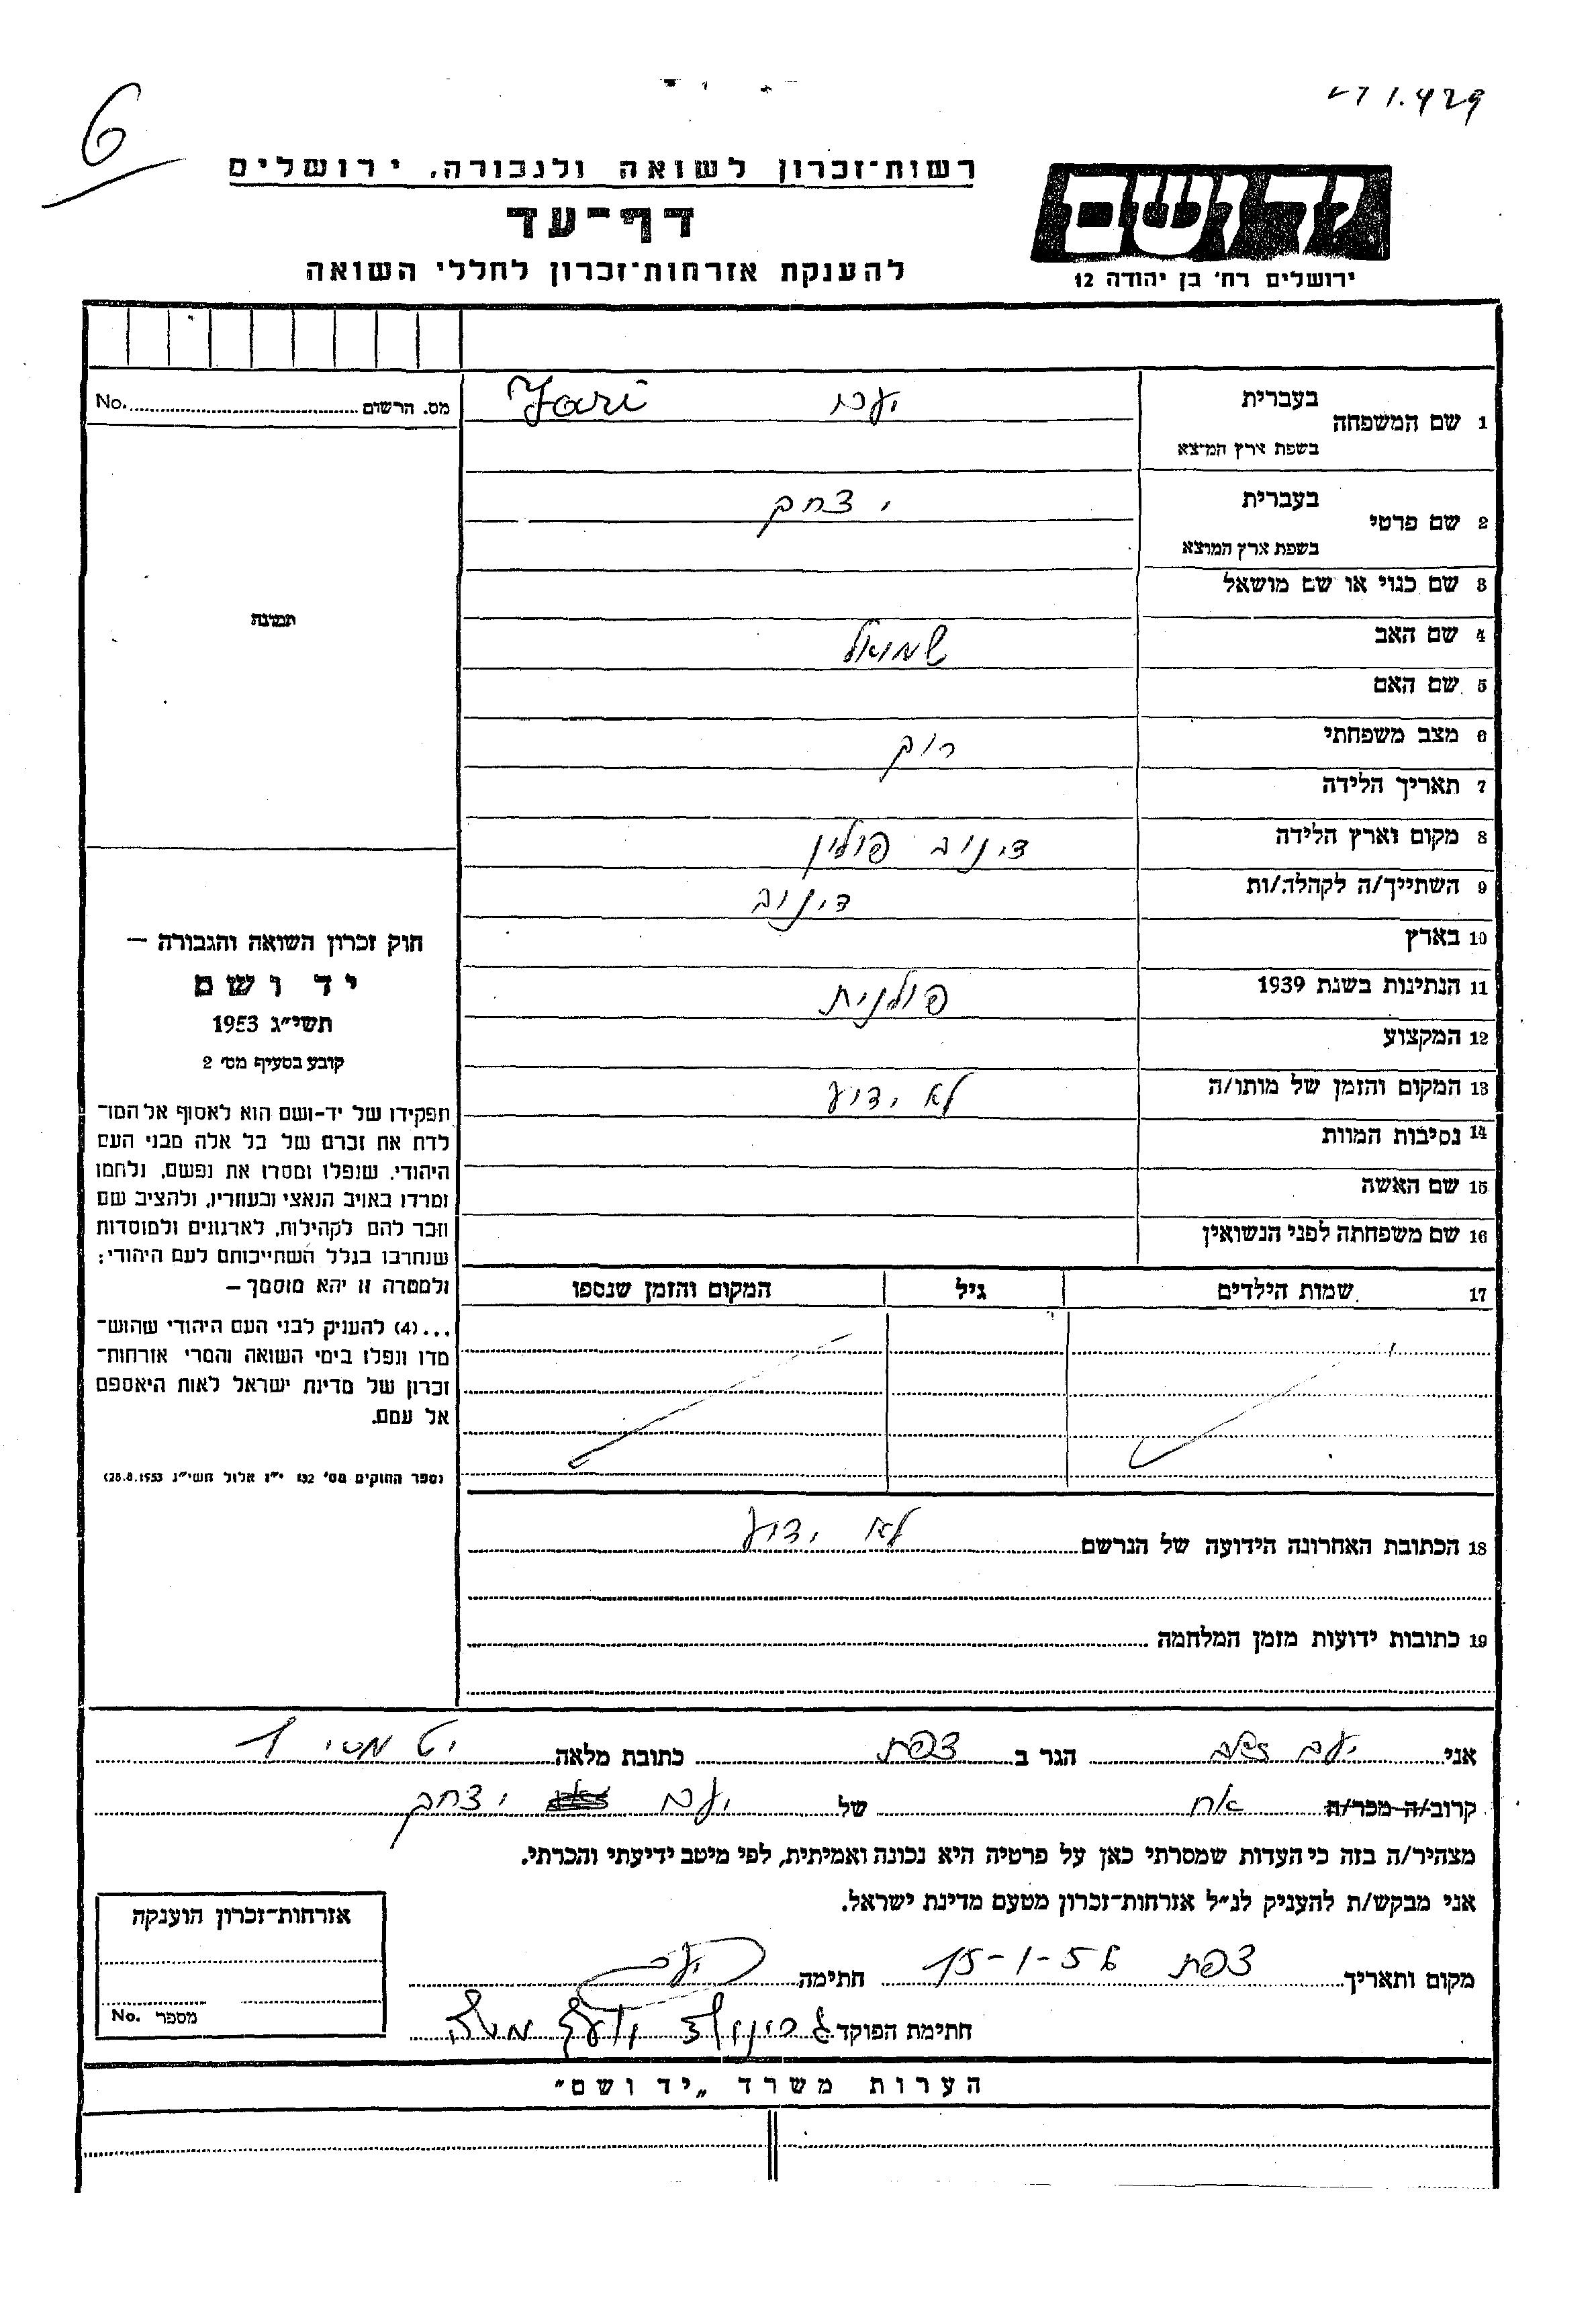 6
1.429
רשות־זכרון לשואה ולגבורה, ירושלים
דף־עד
להענקת אזרחות־זכרון לחללי השואה
יד ושם
ירושלים רח' בן יהודה 12
No. מס. הרשום
1 שם המשפחה
בעברית
Jari
בשפת ארץ המוצא
2 שם פרטי
בעברית יצחק
בשפת ארץ המוצא
3 שם כנוי או שם מושאל
4 שם האב שמואל
5 שם האם
6 מצב משפחתי רווק
7 תאריך הלידה
8 מקום וארץ הלידה דינוב פולין
9 השתייך/ה לקהלה/ות דינוב
10 בארץ
11 הנתינות בשנת 1939 פולנית
12 המקצוע
13 המקום והזמן של מותו/ה לא ידוע
14 נסיבות המוות
15 שם האשה
16 שם משפחתה לפני הנשואין
17 שמות הילדים גיל המקום והזמן שנספו
18 הכתובת האחרונה הידועה של הנרשם לא ידוע
19 כתובות ידועות מזמן המלחמה
תמונה
חוק זכרון השואה והגבורה —
יד ושם
תשי"ג 1953
קובע בסעיף מס' 2
תפקידו של יד-ושם הוא לאסוף אל המו־
לדת את זכרם של כל אלה מבני העם
היהודי, שנפלו ומסרו את נפשם, נלחמו
ומרדו באויב הנאצי ובעוזריו, ולהציב שם
וזכר להם לקהילות, לארגונים ולמוסדות
שנחרבו בגלל השתייכותם לעם היהודי;
ולמטרה זו יהא מוסמך —
...(4) להעניק לבני העם היהודי שהוש־
מדו ונפלו בימי השואה והמרי אזרחות־
זכרון של מדינת ישראל לאות היאספם
אל עמם.
(ספר החוקים מס' 132 י"ז אלול תשי"ג 28.8.1953)
אני הגר ב צפת כתובת מלאה
קרוב/ה מכר/ה אח של יצחק
מצהיר/ה בזה כי העדות שמסרתי כאן על פרטיה היא נכונה ואמיתית, לפי מיטב ידיעתי והכרתי.
אני מבקש/ת להעניק לנ"ל אזרחות־זכרון מטעם מדינת ישראל.
מקום ותאריך צפת 15-1-56 חתימה
חתימת הפוקד
אזרחות־זכרון הוענקה
No. מספר
הערות משרד „יד ושם"